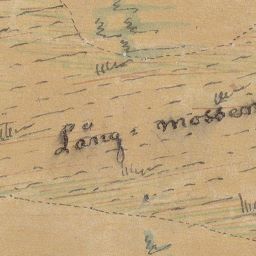 Lång-mossen